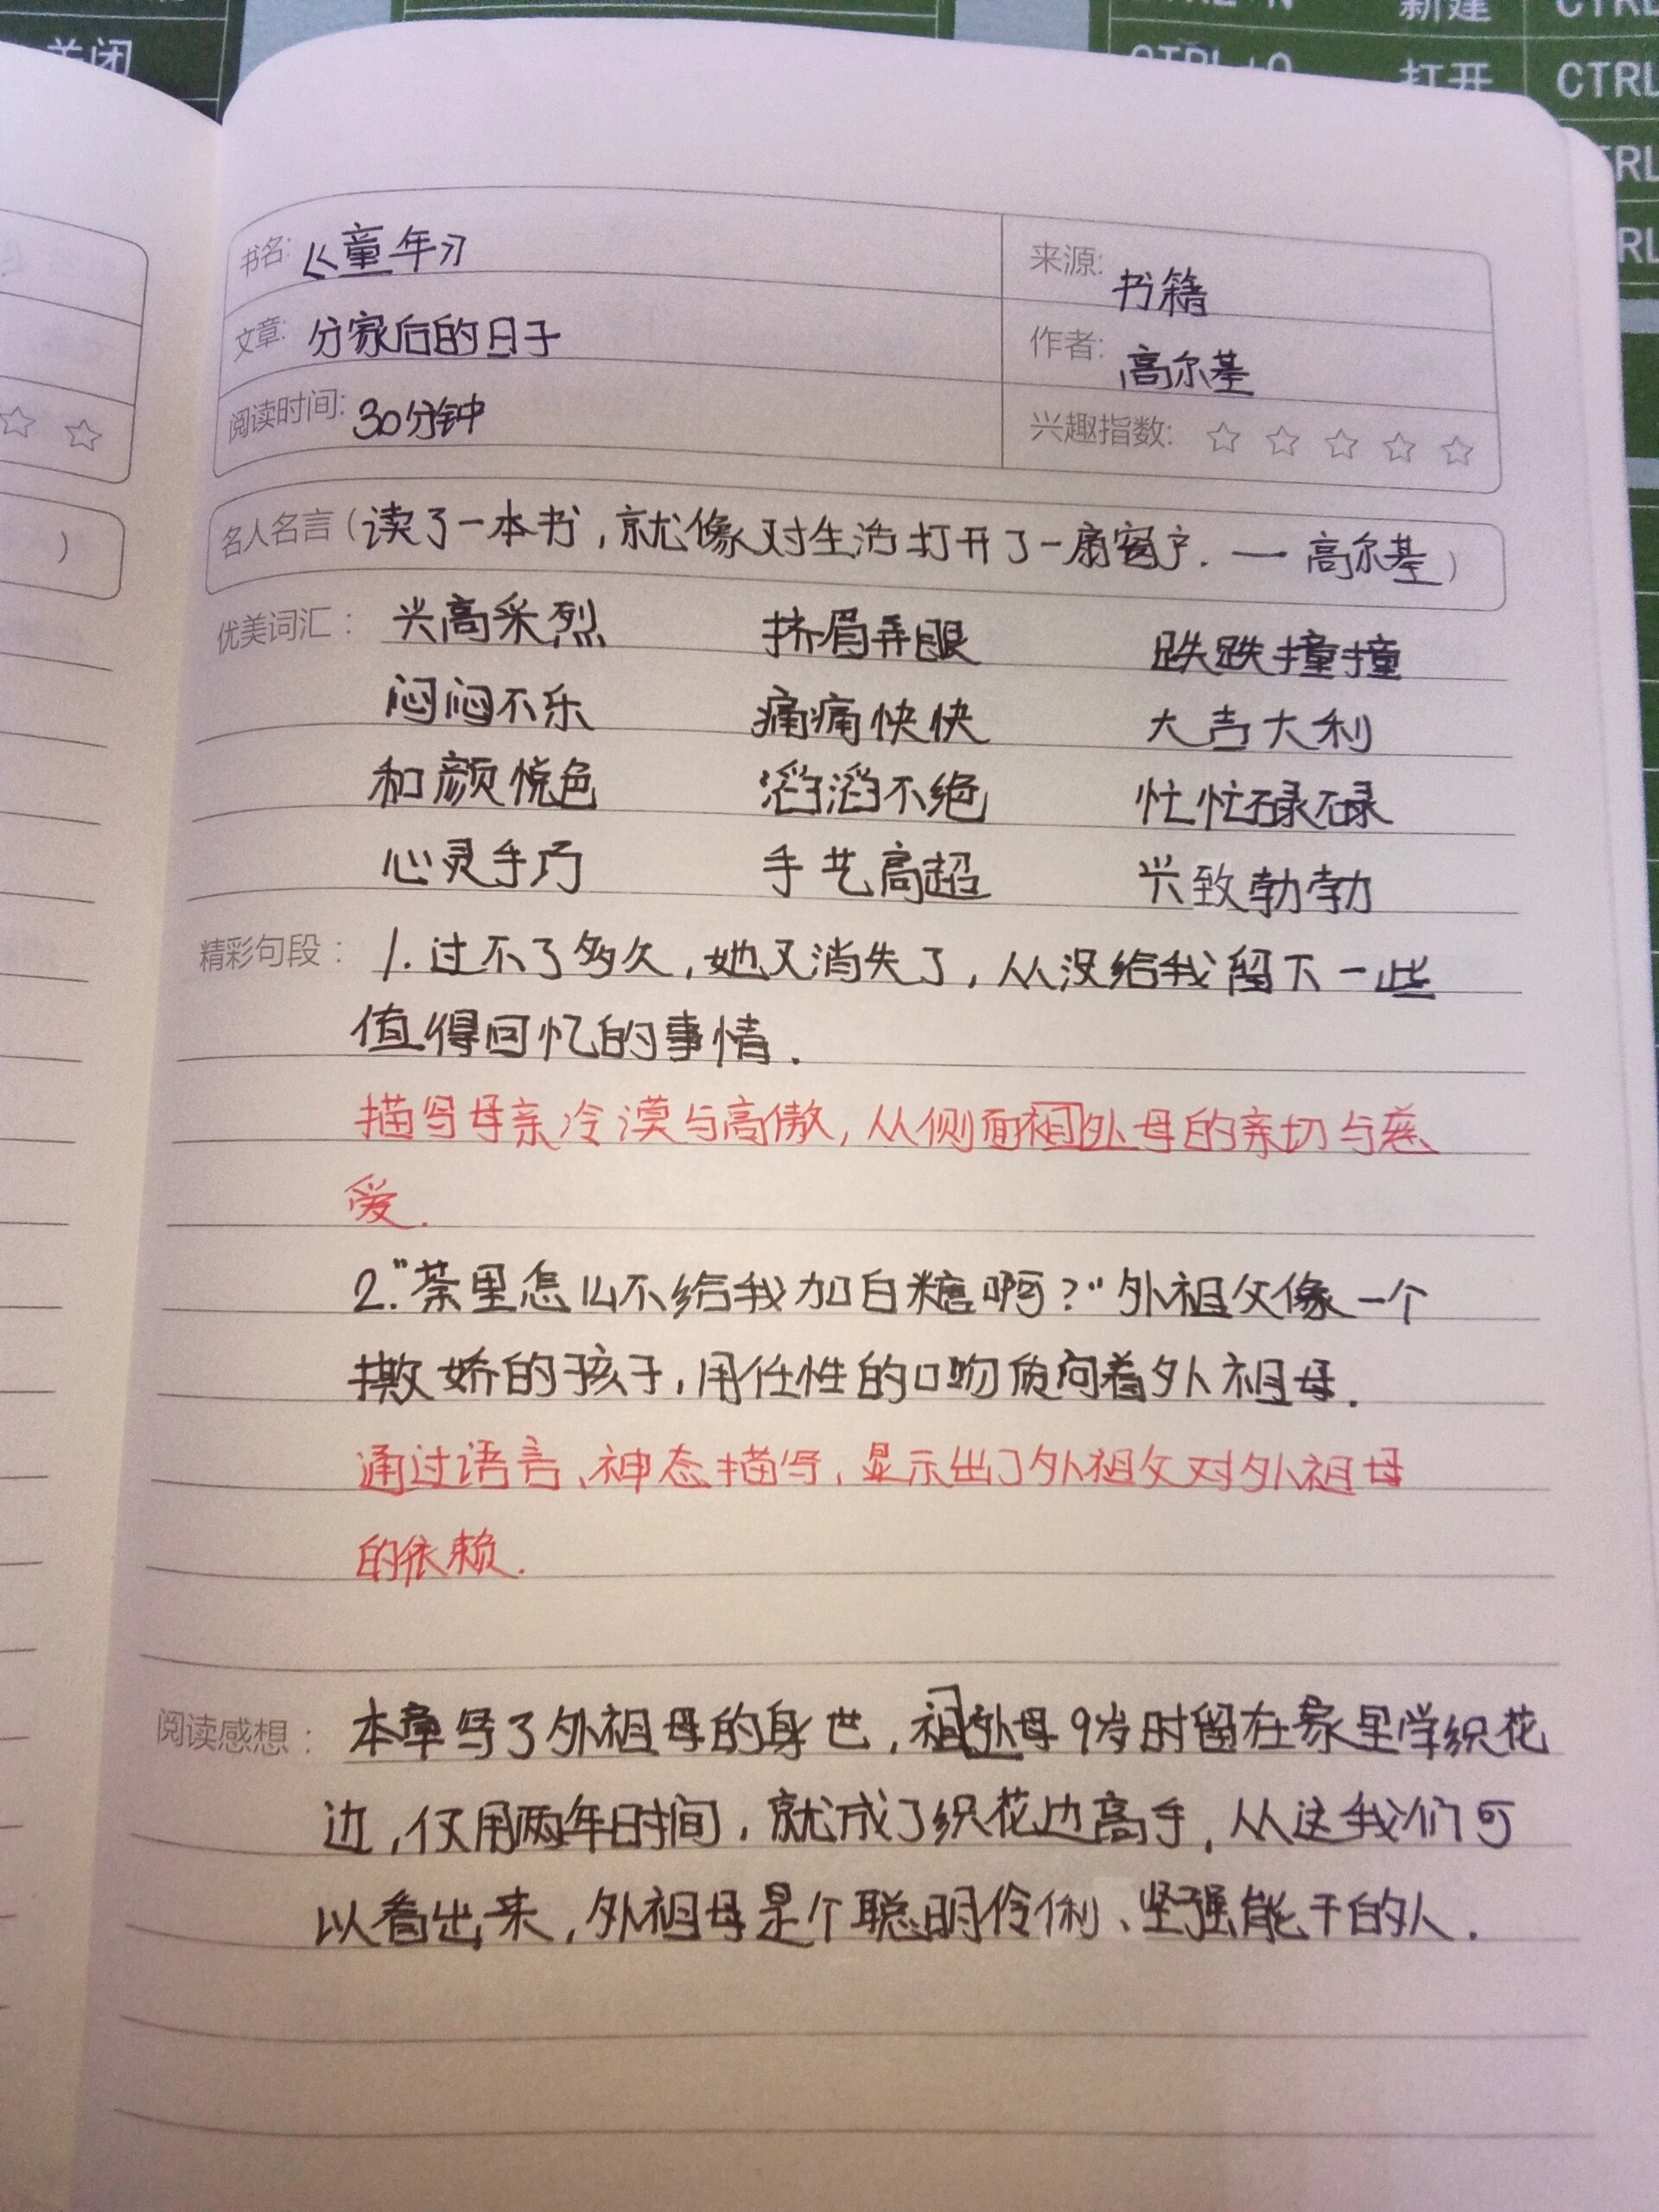 关闭
CTRL+N 新建 CTRL
CTRL+O 打开 CTRL
书名: 《童年》
来源: 书籍
文章: 分家后的日子
作者: 高尔基
阅读时间: 30分钟
兴趣指数: ☆ ☆ ☆ ☆ ☆
名人名言(读了一本书,就像对生活打开了一扇窗户. — 高尔基)
优美词汇: 兴高采烈 挤眉弄眼 跌跌撞撞
闷闷不乐 痛痛快快 大吉大利
和颜悦色 滔滔不绝 忙忙碌碌
心灵手巧 手艺高超 兴致勃勃
精彩句段: 1.过不了多久,她又消失了,从没给我留下一些
值得回忆的事情.
描写母亲冷漠与高傲,从侧面祖外母的亲切与慈
爱.
2."茶里怎么不给我加白糖啊?"外祖父像一个
撒娇的孩子,用任性的口吻质问着外祖母.
通过语言、神态描写,显示出了外祖父对外祖母
的依赖.
阅读感想: 本章写了外祖母的身世,祖外母9岁时留在家里学织花
边,仅用两年时间,就成了织花边高手,从这我们可
以看出来,外祖母是个聪明伶俐、坚强能干的人.